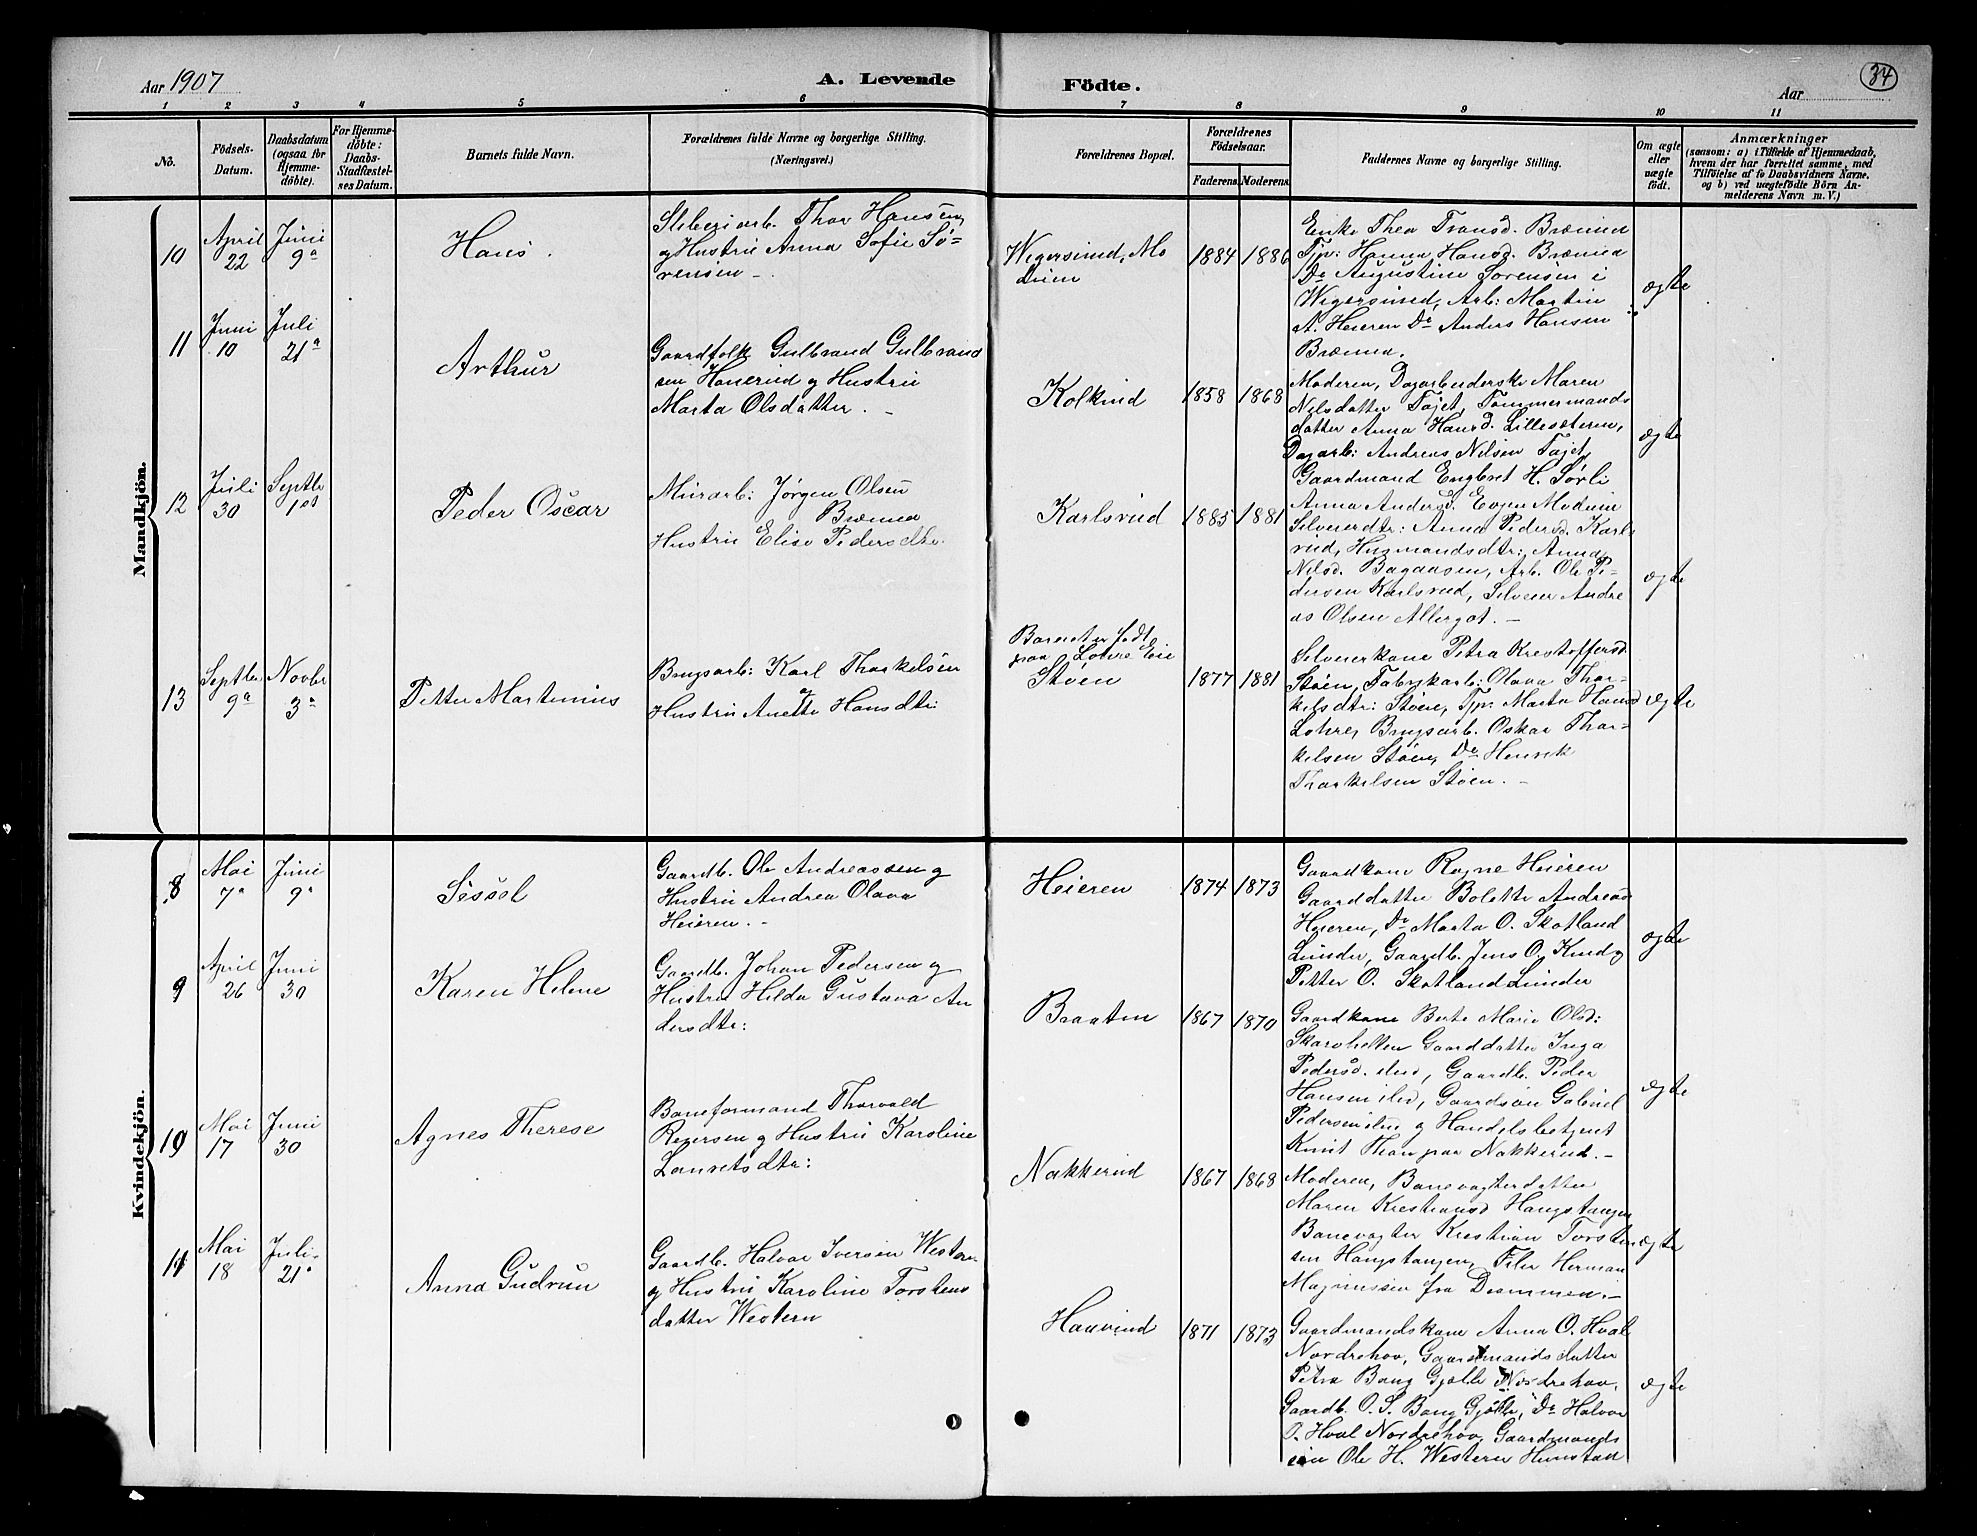 Aar 1907
A. Levende
Födte.
Aar
34
1 2 3 4 5 6 7 8 9 10 11
No.
Födsels-
Datum.
Daabsdatum
(ogsaa for
Hjemme-
döbte).
For Hjemme-
döbte:
Daabs-
Stadfæstel-
ses Datum.
Barnets fulde Navn.
Forældrenes fulde Navne og borgerlige Stilling.
(Næringsvei.)
Forældrenes Bopæl.
Forældrenes
Födselsaar.
Faderens. Moderens.
Faddernes Navne og borgerlige Stilling.
Om ægte
eller
uægte
født.
Anmærkninger
(saasom: a) i Tilfælde af Hjemmedaab,
hvem der har forrettet samme, med
Tilföielse af to Daabsvidners Navne.
og b) ved uægtefödte Börn An-
melderens Navn m. V.)
Mandkjön.
10
April
22
Juni
9a
Hans.
Sliberiarb. Thor Hansen
og Hustru Anna Sofie Sö-
rensen -
Wegersrud, Mo
dum
1884 1886
Enke Thea Transd. Brænna
Tjp: Hanna Hansd. Brænna
Do Augustine Sorensen i
Wegersrud, Arb: Martin
A. Heieren Do Anders Hansen
Brænna.
ægte
11
Juni
10
Juli
21a
Arthur
Gaardfolk Gulbrand Gulbrand
sen Hanerud og Hustru
Marta Olsdatter. -
Kolkind
1858 1868
Moderen, Dagarbeiderske Maren
Nilsdatter Fajet, Tømmermands
datter Anna Hansd. Lillesæteren,
Dagarb: Andreas Nilsen Fajet
Gaardmand Engbret H. Sørli
ægte
12
Juli
30
Septbr
1st
Peder Oscar
Murarb: Jørgen Olsen
Brænna
Hustru Elise Pedersdtr.
Karlsrud
1885 1881
Anna Andersd. Evjen Modum
Selveierdtr: Anna Pedersd. Karls
rud, Husmandsdtr: Anna
Nilsd. Bagaasen, Arb. Ole Pe-
dersen Karlsrud, Selveier Andre
as Olsen Allergot. -
ægte
13
Septbr
9a
Novbr
3a
Petter Martinius
Brugsarb: Karl Thorkelsen
og
Hustru Anette Hansdtr:
Barnet er født
paa Lohre Eie
Støen
1877 1881
Selveierkone Petra Krestoffersd.
Støen, Fabrikarb: Olava Thor-
kelsdtr: Støen, Tjp: Marta Hansd
Lohre, Brugsarb. Oskar Thor-
kelsen Støen, Do Henrik
Thorkelsen Støen. -
ægte
Kvindekjön.
8
Mai
7a
Juni
9a
Sissel
Gaardb. Ole Andreassen og
Hustru Andrea Olava
Heieren. -
Heieren
1874 1873
Gaardkone Ragne Heieren
Gaarddatter Bolette Andreasd
Heieren, Do Marta O. Skotland
Lunder, Gaardb. Jens O. Knud og
Petter O. Skotland Lunder
ægte
9
April
26
Juni
30
Karen Helene
Gaardb. Johan Pedersen og
Hustru Hilda Gustava An
dersdtr:
Braaten
1867 1870
Gaardkone Berte Marie Olsd:
Skarohellen Gaarddatter Inga
Pedersd. ilud, Gaardb. Peder
Hansen ilud, Gaardsøn Gabriel
Pedersen ilud og Handelsbetjent
Knut Thon paa Nakkerud. -
ægte
10
Mai
17
Juni
30
Agnes Therese
Baneformand Thorvald
Regersen og Hustru Karoline
Lauretsdtr:
Nakkerud
1867 1868
Moderen, Banevogterdatter
Maren Krestiansd Hangstangen
Banevogter Kristian Torsten
sen Hangstangen, Filer Herman
Magnussen fra Drammen. -
ægte
11
Mai
18
Juli
21a
Anna Gudrun
Gaardb. Halvor Iversen Western
og Hustru Karoline Torstens
datter Western
Haavrud
1871 1873
Gaardmandskone Anna O. Hval
Nordrehov, Gaardmandsdatter
Petra Bang Gjølle Nordrehov,
Gaardb. O. S. Bang Gjølle, Do Halvor
O. Hval Nordrehov, Gaardmands
søn Ole H. Western Hunstad
ægte